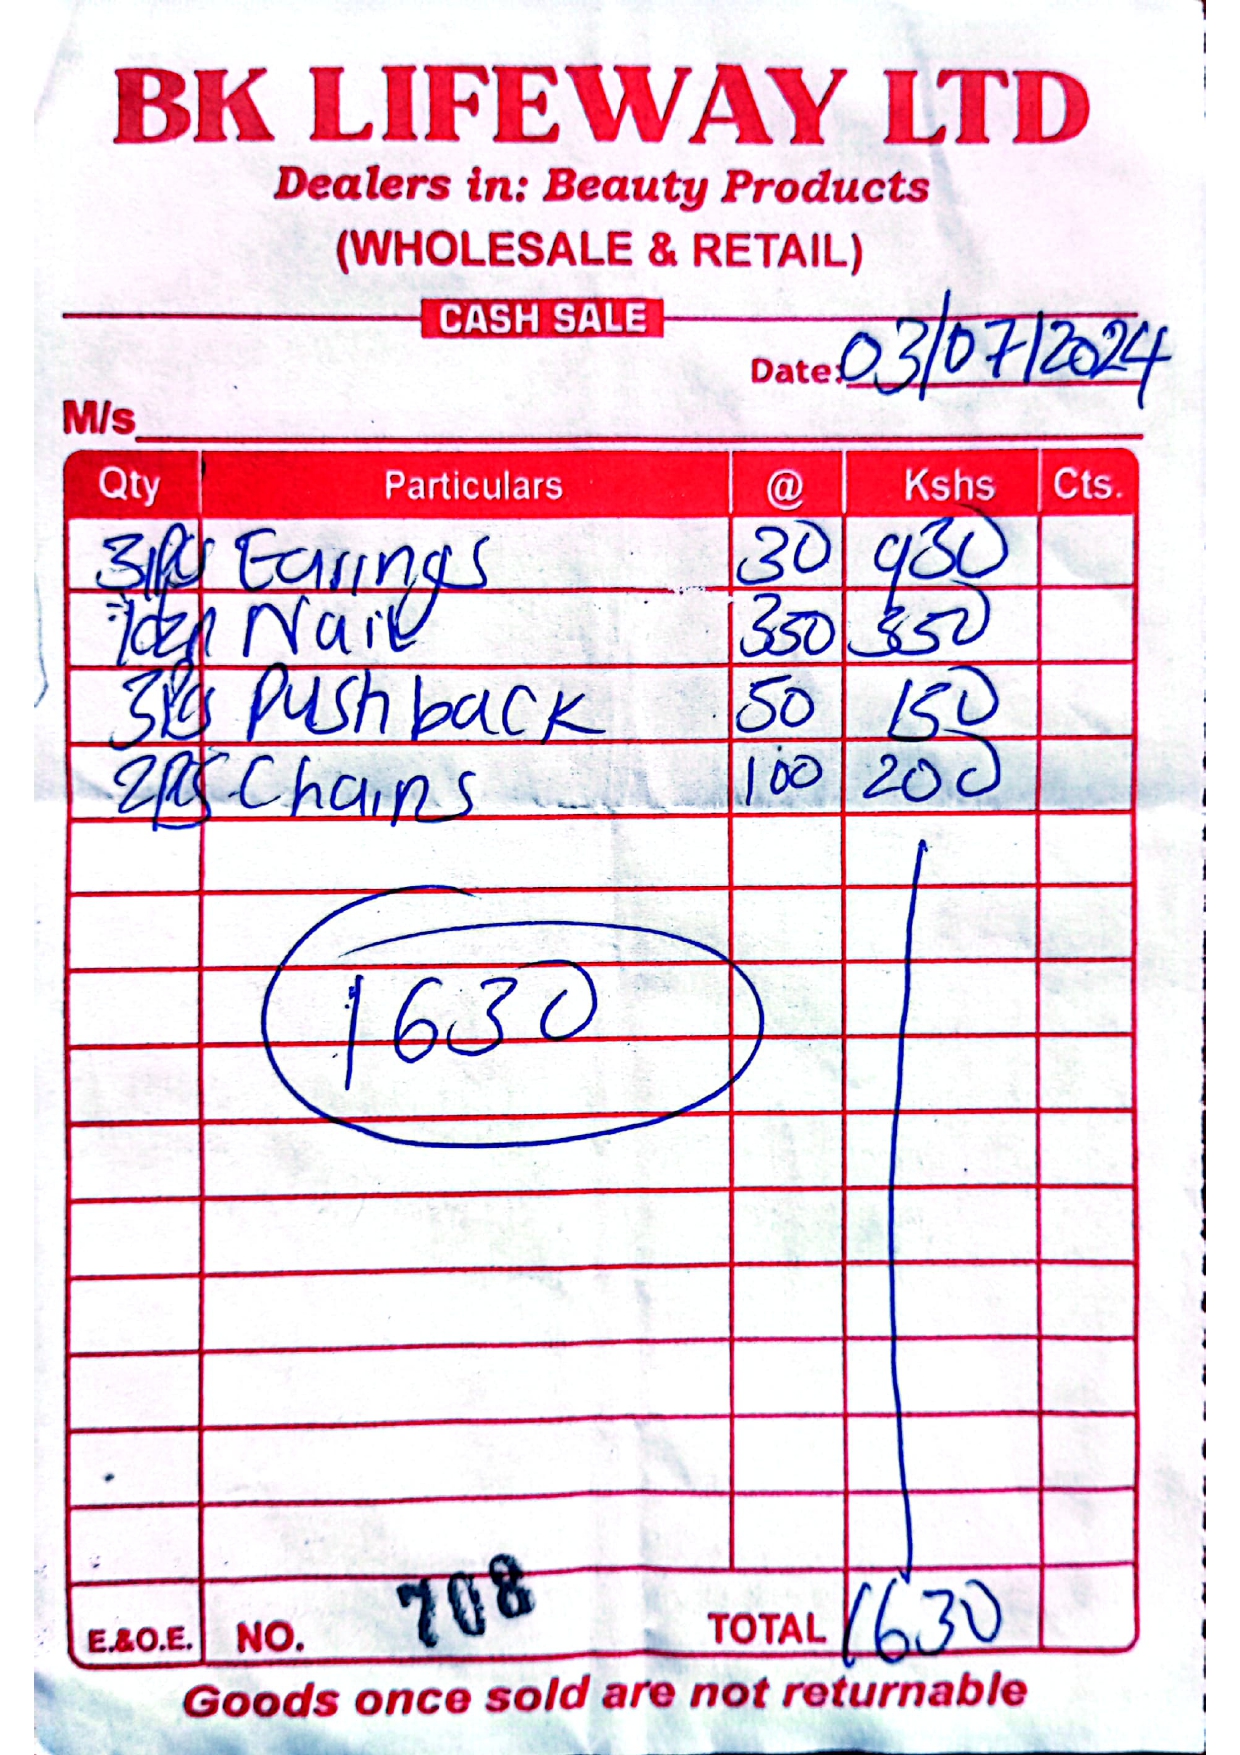 BK LIFEWAY LTD
Dealers in: Beauty Products
(WHOLESALE & RETAIL)
CASH SALE
Date: 03/07/2024
M/s
Qty Particulars @ Kshs Cts.
31Pcs Earings 30 930
1dzn Nail 350 350
3Pcs Pushback 50 150
2Pcs Chains 100 200
1630
E.&O.E. NO. 708 TOTAL 1630
Goods once sold are not returnable